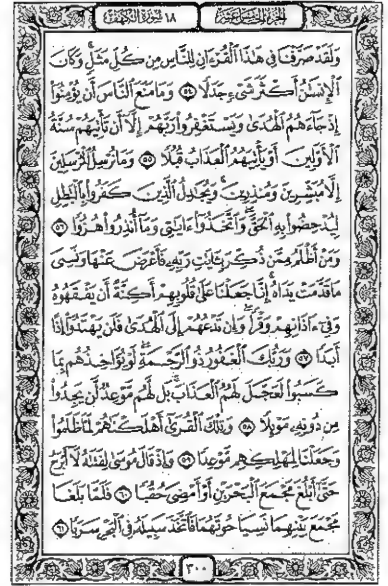 الجزء الخامس عشر ١٨ سورة الكهف
وَلَقَدْ صَرَّفْنَا فِي هَٰذَا ٱلْقُرْءَانِ لِلنَّاسِ مِن كُلِّ مَثَلٍۚ وَكَانَ
ٱلْإِنسَٰنُ أَكْثَرَ شَىْءٍ جَدَلًا ٥٤ وَمَا مَنَعَ ٱلنَّاسَ أَن يُؤْمِنُوٓا۟
إِذْ جَآءَهُمُ ٱلْهُدَىٰ وَيَسْتَغْفِرُوا۟ رَبَّهُمْ إِلَّآ أَن تَأْتِيَهُمْ سُنَّةُ
ٱلْأَوَّلِينَ أَوْ يَأْتِيَهُمُ ٱلْعَذَابُ قُبُلًا ٥٥ وَمَا نُرْسِلُ ٱلْمُرْسَلِينَ
إِلَّا مُبَشِّرِينَ وَمُنذِرِينَۚ وَيُجَٰدِلُ ٱلَّذِينَ كَفَرُوا۟ بِٱلْبَٰطِلِ
لِيُدْحِضُوا۟ بِهِ ٱلْحَقَّۖ وَٱتَّخَذُوٓا۟ ءَايَٰتِى وَمَآ أُنذِرُوا۟ هُزُوًا ٥٦
وَمَنْ أَظْلَمُ مِمَّن ذُكِّرَ بِـَٔايَٰتِ رَبِّهِۦ فَأَعْرَضَ عَنْهَا وَنَسِىَ
مَا قَدَّمَتْ يَدَاهُۚ إِنَّا جَعَلْنَا عَلَىٰ قُلُوبِهِمْ أَكِنَّةً أَن يَفْقَهُوهُ
وَفِىٓ ءَاذَانِهِمْ وَقْرًاۖ وَإِن تَدْعُهُمْ إِلَى ٱلْهُدَىٰ فَلَن يَهْتَدُوٓا۟ إِذًا
أَبَدًا ٥٧ وَرَبُّكَ ٱلْغَفُورُ ذُو ٱلرَّحْمَةِۖ لَوْ يُؤَاخِذُهُم بِمَا
كَسَبُوا۟ لَعَجَّلَ لَهُمُ ٱلْعَذَابَۚ بَل لَّهُم مَّوْعِدٌ لَّن يَجِدُوا۟
مِن دُونِهِۦ مَوْئِلًا ٥٨ وَتِلْكَ ٱلْقُرَىٰٓ أَهْلَكْنَٰهُمْ لَمَّا ظَلَمُوا۟
وَجَعَلْنَا لِمَهْلِكِهِم مَّوْعِدًا ٥٩ وَإِذْ قَالَ مُوسَىٰ لِفَتَىٰهُ لَآ أَبْرَحُ
حَتَّىٰٓ أَبْلُغَ مَجْمَعَ ٱلْبَحْرَيْنِ أَوْ أَمْضِىَ حُقُبًا ٦٠ فَلَمَّا بَلَغَا
مَجْمَعَ بَيْنِهِمَا نَسِيَا حُوتَهُمَا فَٱتَّخَذَ سَبِيلَهُۥ فِى ٱلْبَحْرِ سَرَبًا ٦١
٣٠٠